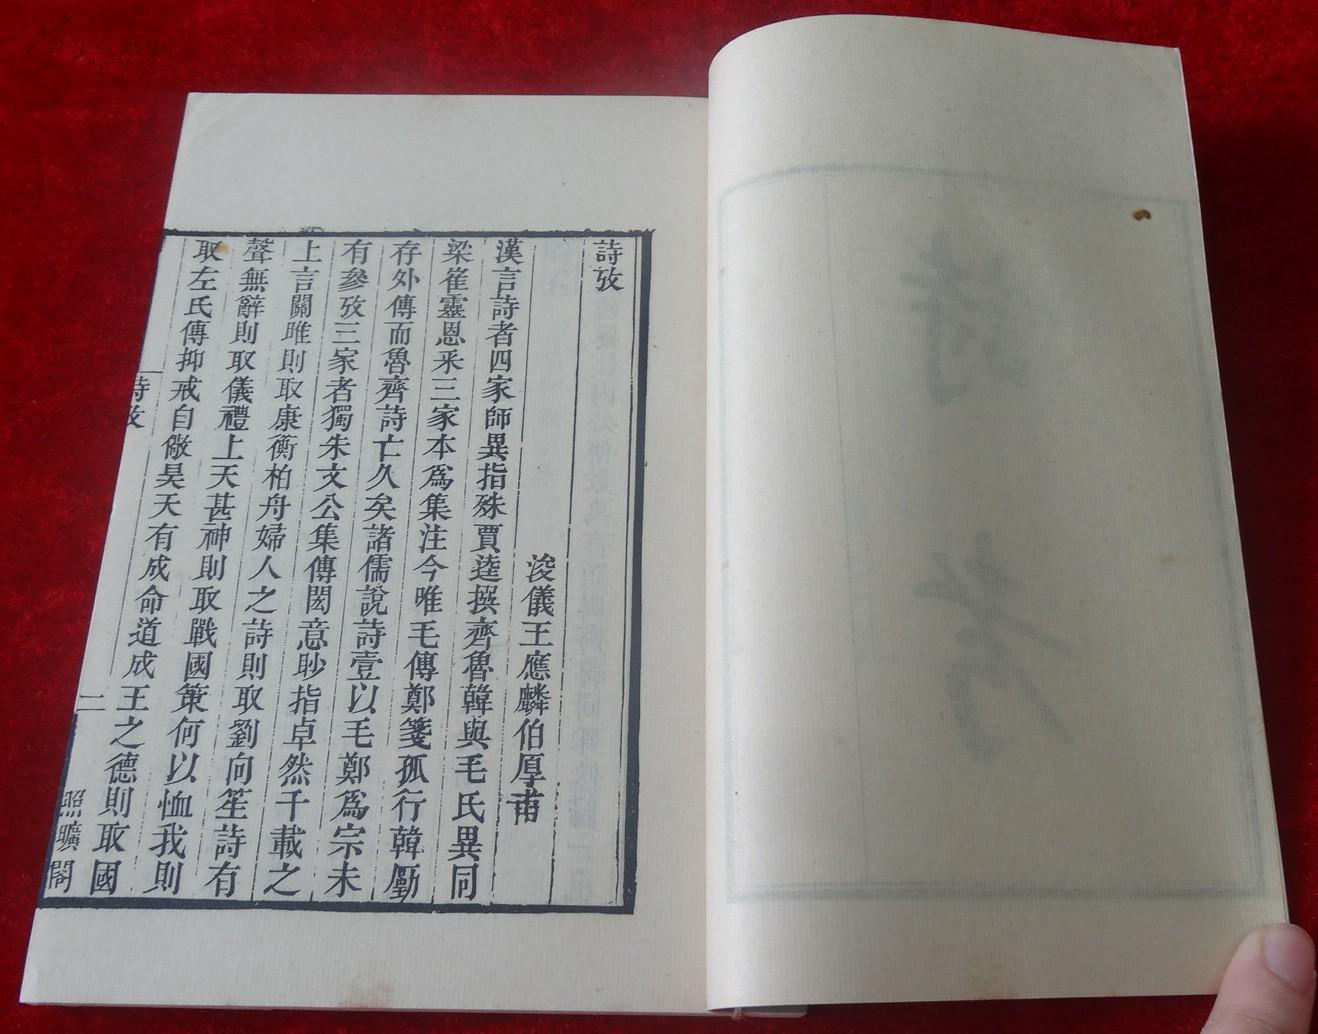 詩攷
浚儀王應麟伯厚甫
漢言詩者四家師異指殊賈逵撰齊魯韓與毛氏異同
梁崔靈恩釆三家本爲集注今唯毛傳鄭箋孤行韓厪
存外傳而魯齊詩亡久矣諸儒說詩壹以毛鄭爲宗未
有參攷三家者獨朱文公集傳閎意眇指卓然千載之
上言關雎則取康衡柏舟婦人之詩則取劉向笙詩有
聲無辭則取儀禮上天甚神則取戰國策何以恤我則
取左氏傳抑戒自儆昊天有成命道成王之德則取國
詩攷
二
照曠閣
詩考